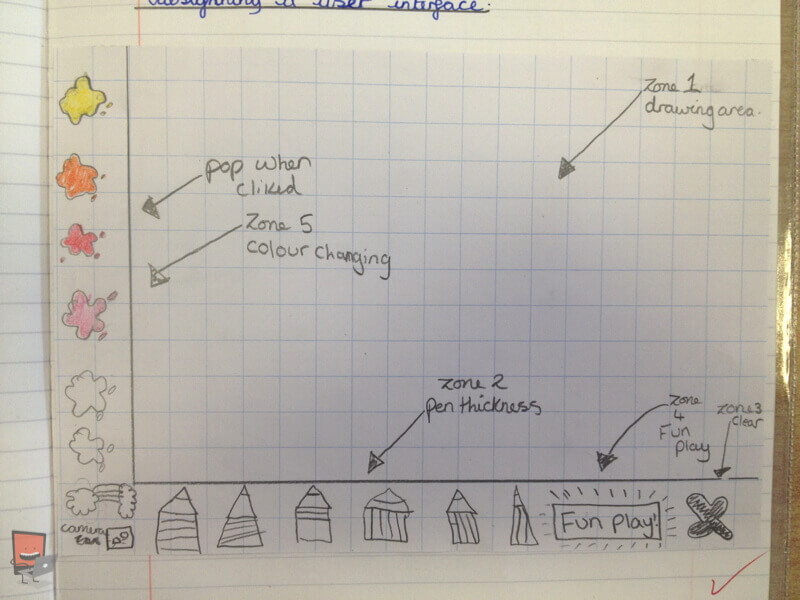 designning a user interface.
Zone 1
drawing area.
pop when
cliked
Zone 5
colour changing
zone 2
pen thickness
zone
4
Fun
play
zone 3
clear
camera
Fun play!